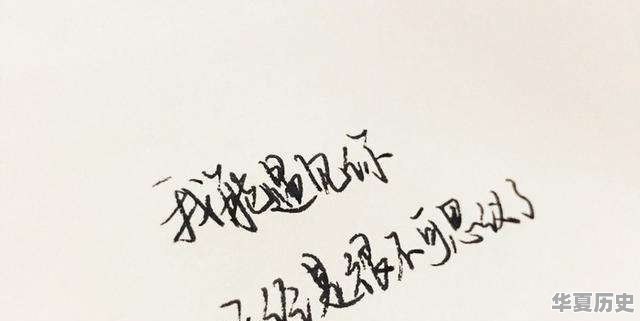 我能遇见你
已经是很不可思议了
华夏历史